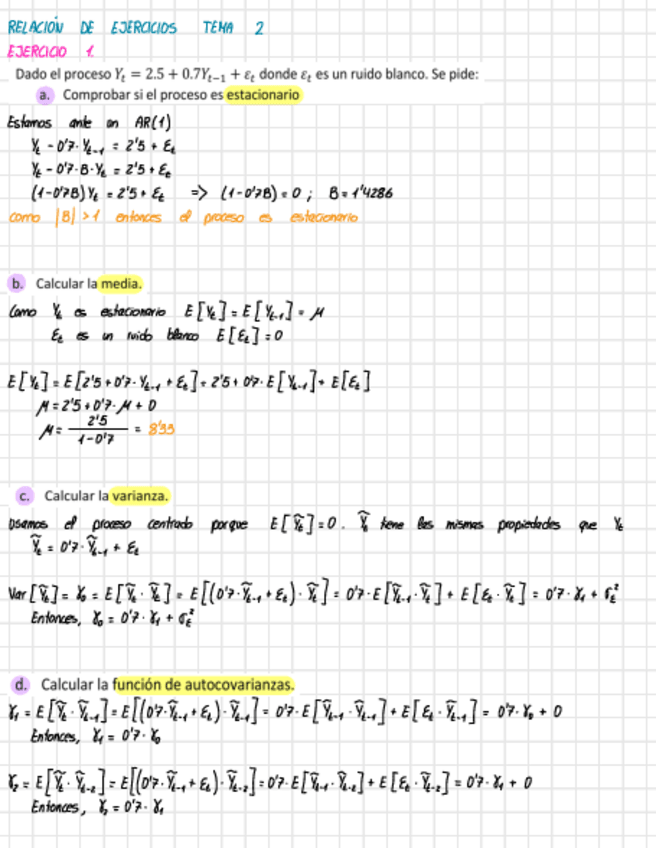 RELACIÓN DE EJERCICIOS TEMA 2
EJERCICIO 1.
Dado el proceso Yₜ = 2.5 + 0.7Yₜ₋₁ + εₜ donde εₜ es un ruido blanco. Se pide:
a. Comprobar si el proceso es estacionario
Estamos ante un AR(1)
Yₜ - 0'7·Yₜ₋₁ = 2'5 + εₜ
Yₜ - 0'7·B·Yₜ = 2'5 + εₜ
(1-0'7B)Yₜ = 2'5 + εₜ => (1-0'7B) = 0 ; B = 1'4286
como |B| > 1 entonces el proceso es estacionario
b. Calcular la media.
Como Yₜ es estacionario E[Yₜ] = E[Yₜ₋₁] = μ
εₜ es un ruido blanco E[εₜ] = 0
E[Yₜ] = E[2'5 + 0'7·Yₜ₋₁ + εₜ] = 2'5 + 0'7·E[Yₜ₋₁] + E[εₜ]
μ = 2'5 + 0'7·μ + 0
μ = 2'5 / 1-0'7 = 8'33
c. Calcular la varianza.
Usamos el proceso centrado porque E[Ỹₜ] = 0. Ỹₜ tiene las mismas propiedades que Yₜ
Ỹₜ = 0'7·Ỹₜ₋₁ + εₜ
Var[Ỹₜ] = γ₀ = E[Ỹₜ·Ỹₜ] = E[(0'7·Ỹₜ₋₁ + εₜ)·Ỹₜ] = 0'7·E[Ỹₜ₋₁·Ỹₜ] + E[εₜ·Ỹₜ] = 0'7·γ₁ + σ_ε²
Entonces, γ₀ = 0'7·γ₁ + σ_ε²
d. Calcular la función de autocovarianzas.
γ₁ = E[Ỹₜ·Ỹₜ₋₁] = E[(0'7·Ỹₜ₋₁ + εₜ)·Ỹₜ₋₁] = 0'7·E[Ỹₜ₋₁·Ỹₜ₋₁] + E[εₜ·Ỹₜ₋₁] = 0'7·γ₀ + 0
Entonces, γ₁ = 0'7·γ₀
γ₂ = E[Ỹₜ·Ỹₜ₋₂] = E[(0'7·Ỹₜ₋₁ + εₜ)·Ỹₜ₋₂] = 0'7·E[Ỹₜ₋₁·Ỹₜ₋₂] + E[εₜ·Ỹₜ₋₂] = 0'7·γ₁ + 0
Entonces, γ₂ = 0'7·γ₁